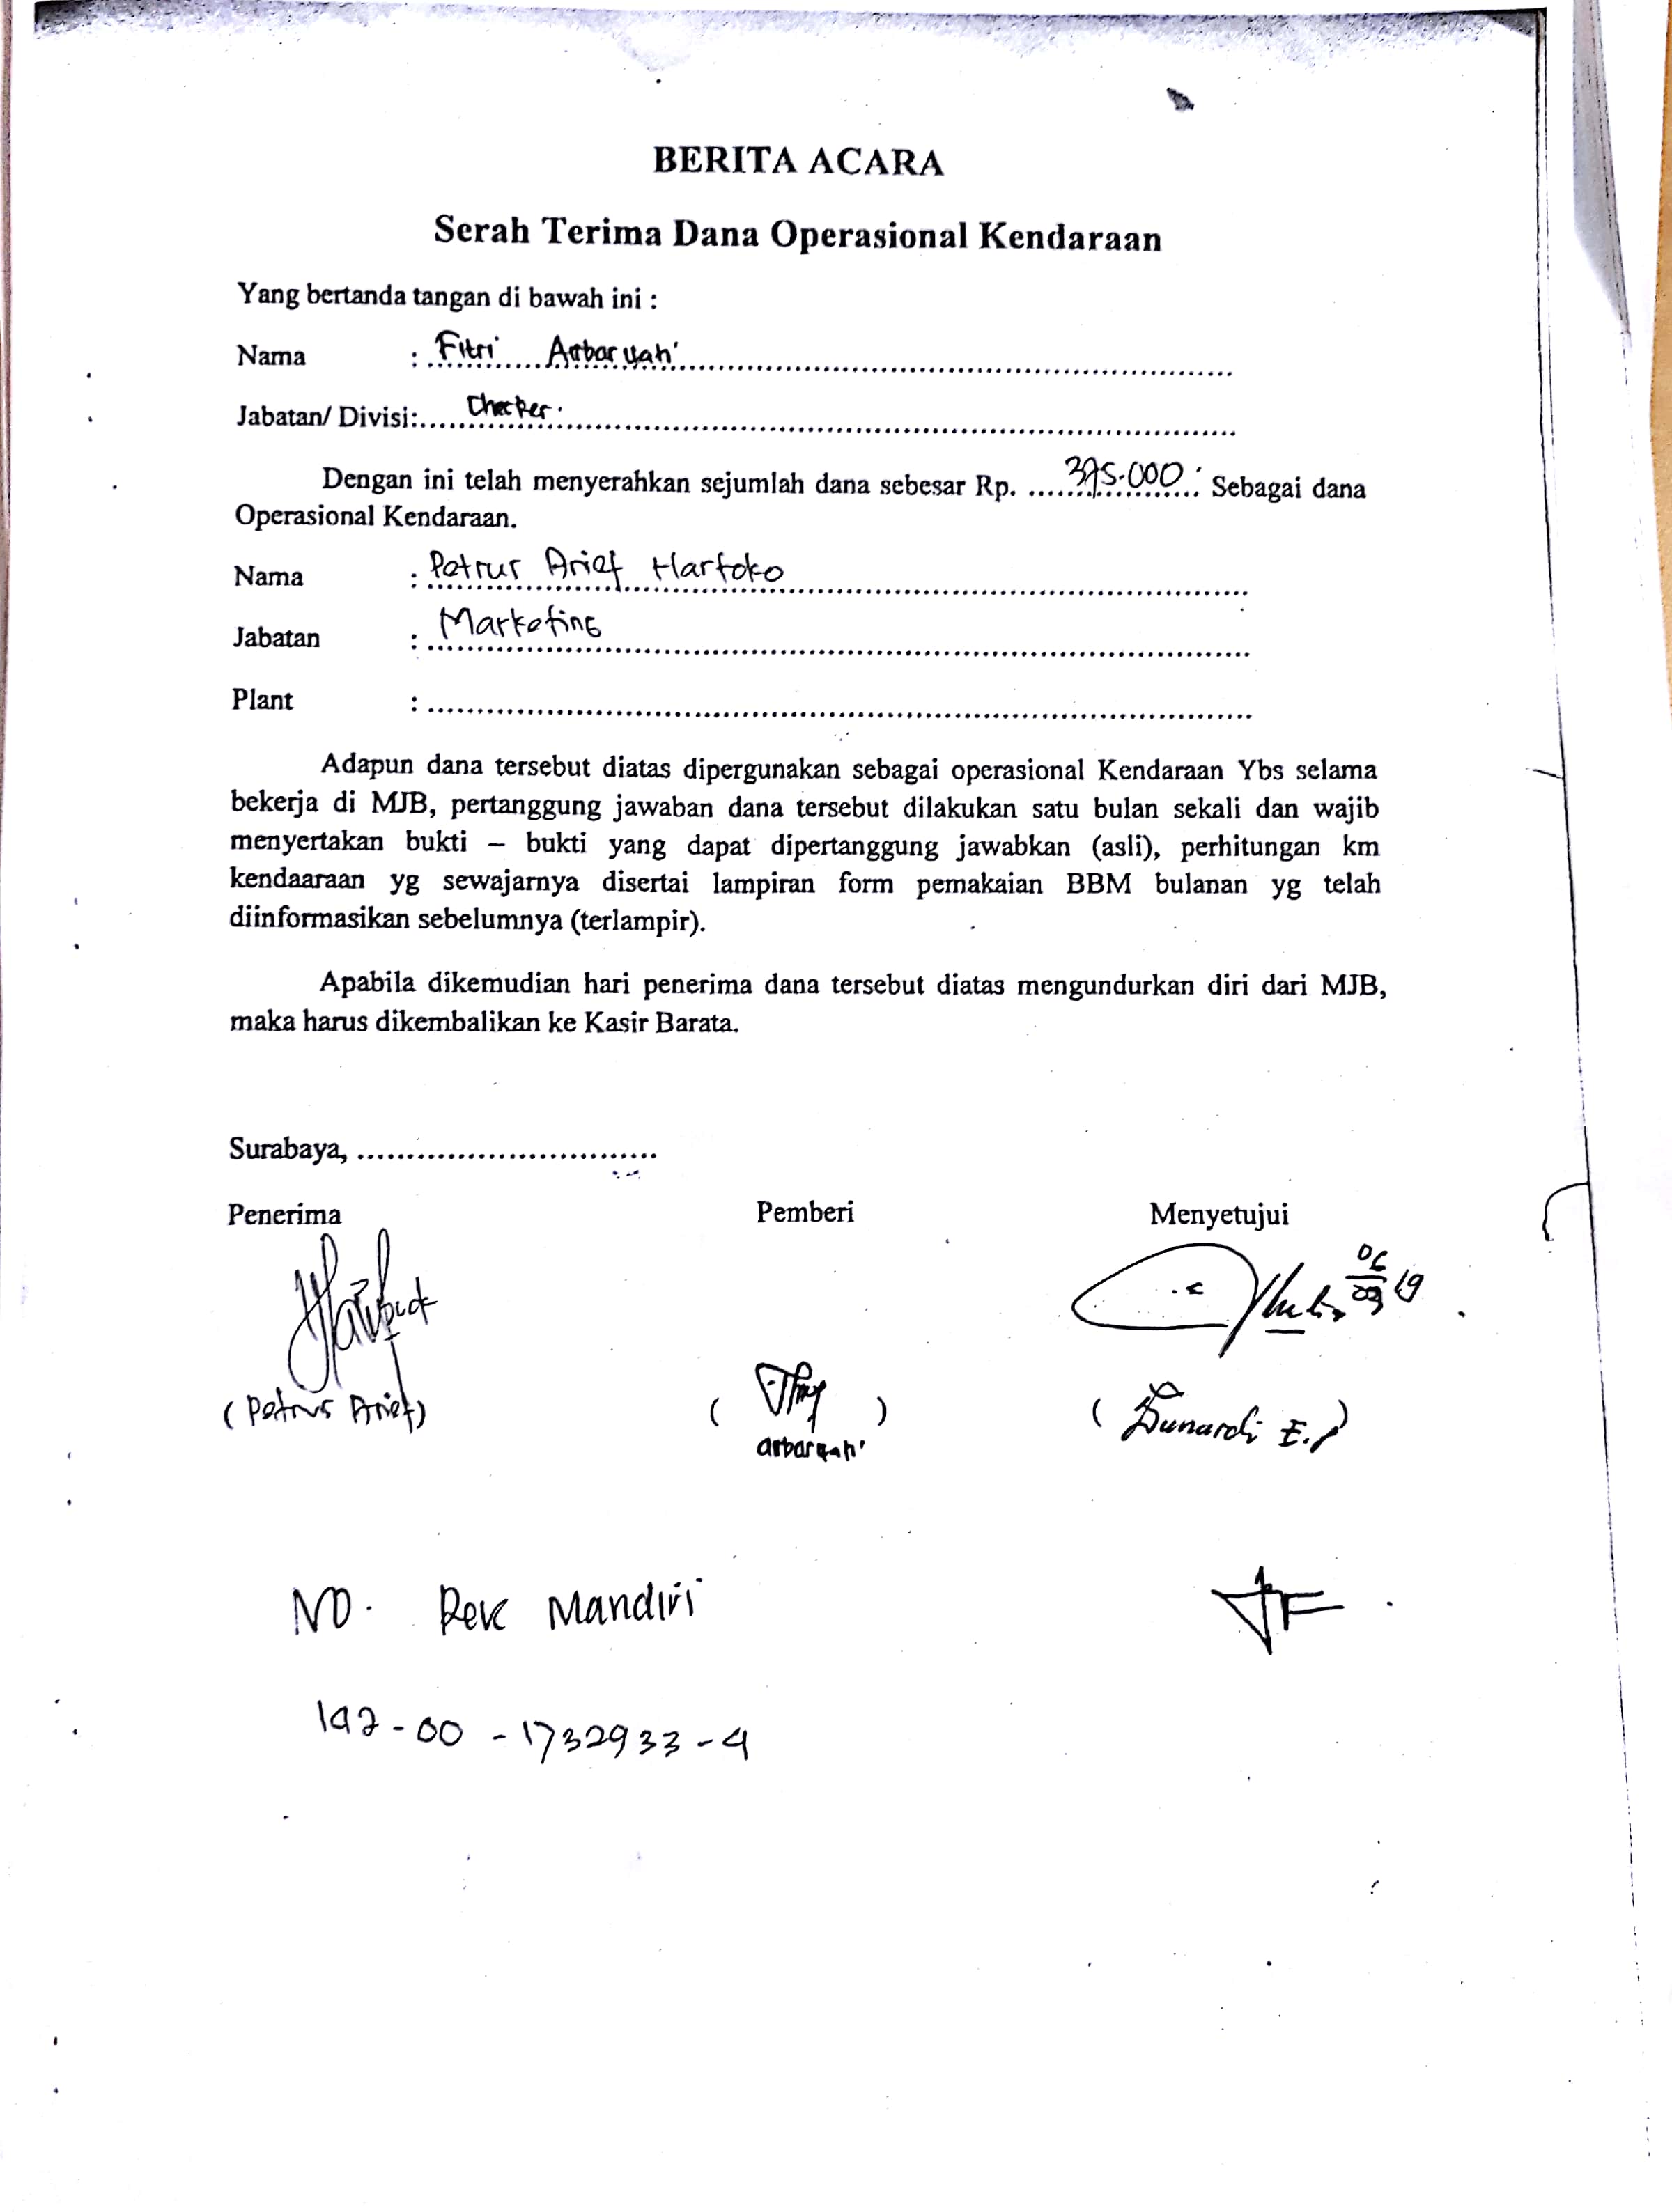 BERITA ACARA
Serah Terima Dana Operasional Kendaraan
Yang bertanda tangan di bawah ini :
Nama : Fitri
Jabatan/ Divisi: Checker.
Dengan ini telah menyerahkan sejumlah dana sebesar Rp. 375.000 Sebagai dana
Operasional Kendaraan.
Nama : Petrus Arief Hartoko
Jabatan : Marketing
Plant :
Adapun dana tersebut diatas dipergunakan sebagai operasional Kendaraan Ybs selama
bekerja di MJB, pertanggung jawaban dana tersebut dilakukan satu bulan sekali dan wajib
menyertakan bukti – bukti yang dapat dipertanggung jawabkan (asli), perhitungan km
kendaaraan yg sewajarnya disertai lampiran form pemakaian BBM bulanan yg telah
diinformasikan sebelumnya (terlampir).
Apabila dikemudian hari penerima dana tersebut diatas mengundurkan diri dari MJB,
maka harus dikembalikan ke Kasir Barata.
Surabaya,
Penerima Pemberi Menyetujui
(Petrus Arief) ( ) (Sunardi E.)
NO. Rek Mandiri
142-00-1732933-4